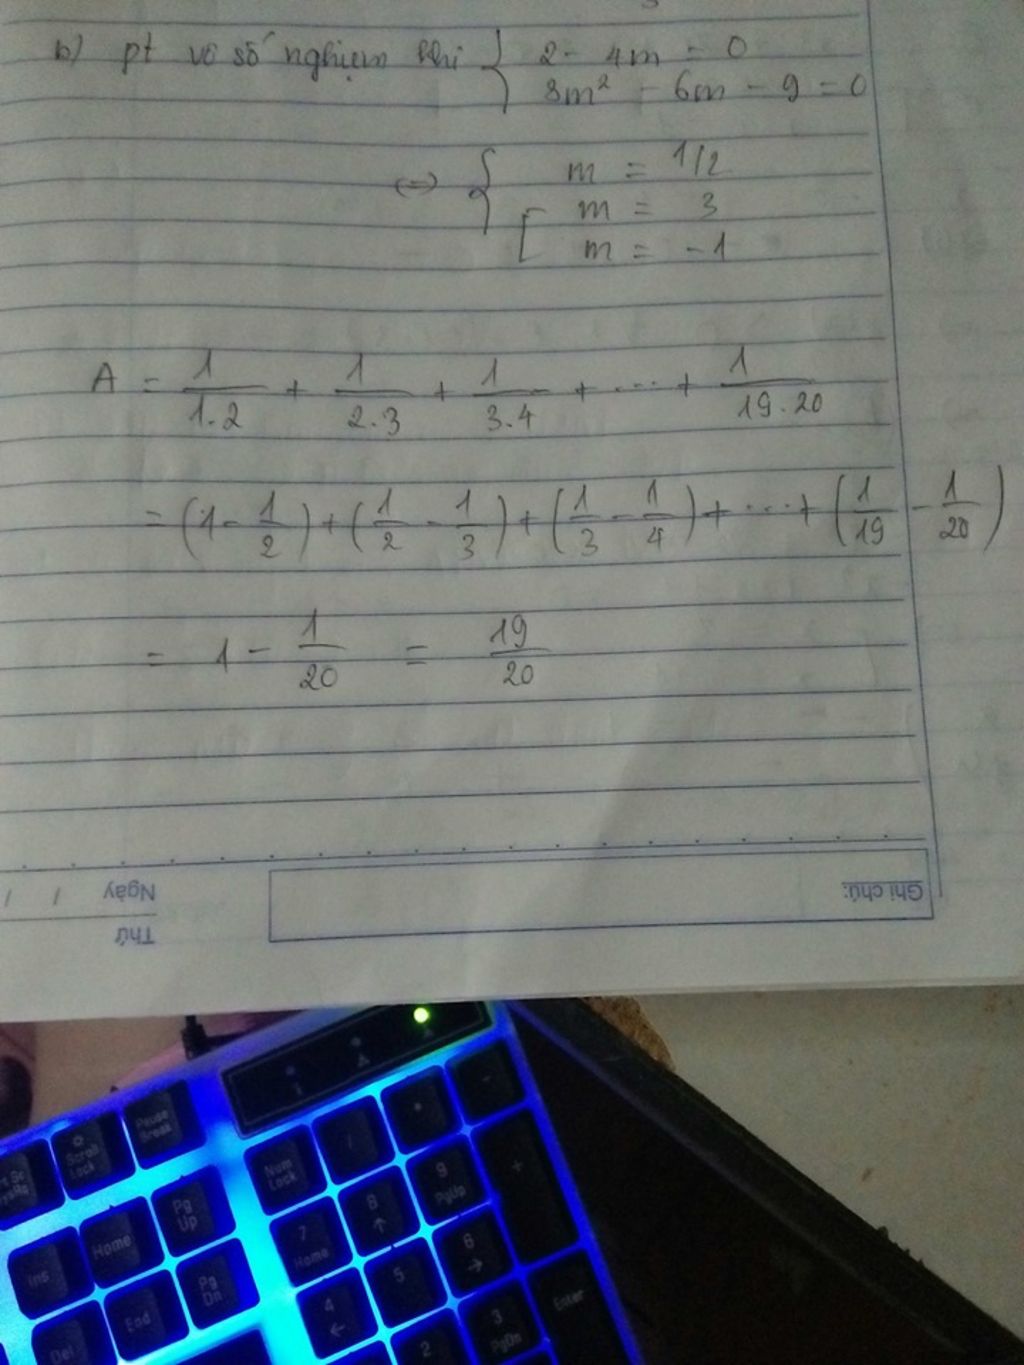 b) pt vô số nghiệm khi { 2 - 4m = 0
8m² - 6m - 9 = 0
<=> { m = 1/2
[ m = 3
m = -1
A = 1/1.2 + 1/2.3 + 1/3.4 + ... + 1/19.20
= (1 - 1/2) + (1/2 - 1/3) + (1/3 - 1/4) + ... + (1/19 - 1/20)
= 1 - 1/20 = 19/20
Ghi chú:
Thứ
Ngày / /
Scroll Lock
Pause Break
Ins
Home
Pg Up
Del
End
Pg Dn
Num Lock
/
*
-
7 Home
8 ↑
9 PgUp
+
4 ←
5
6 →
2
3 PgDn
Enter